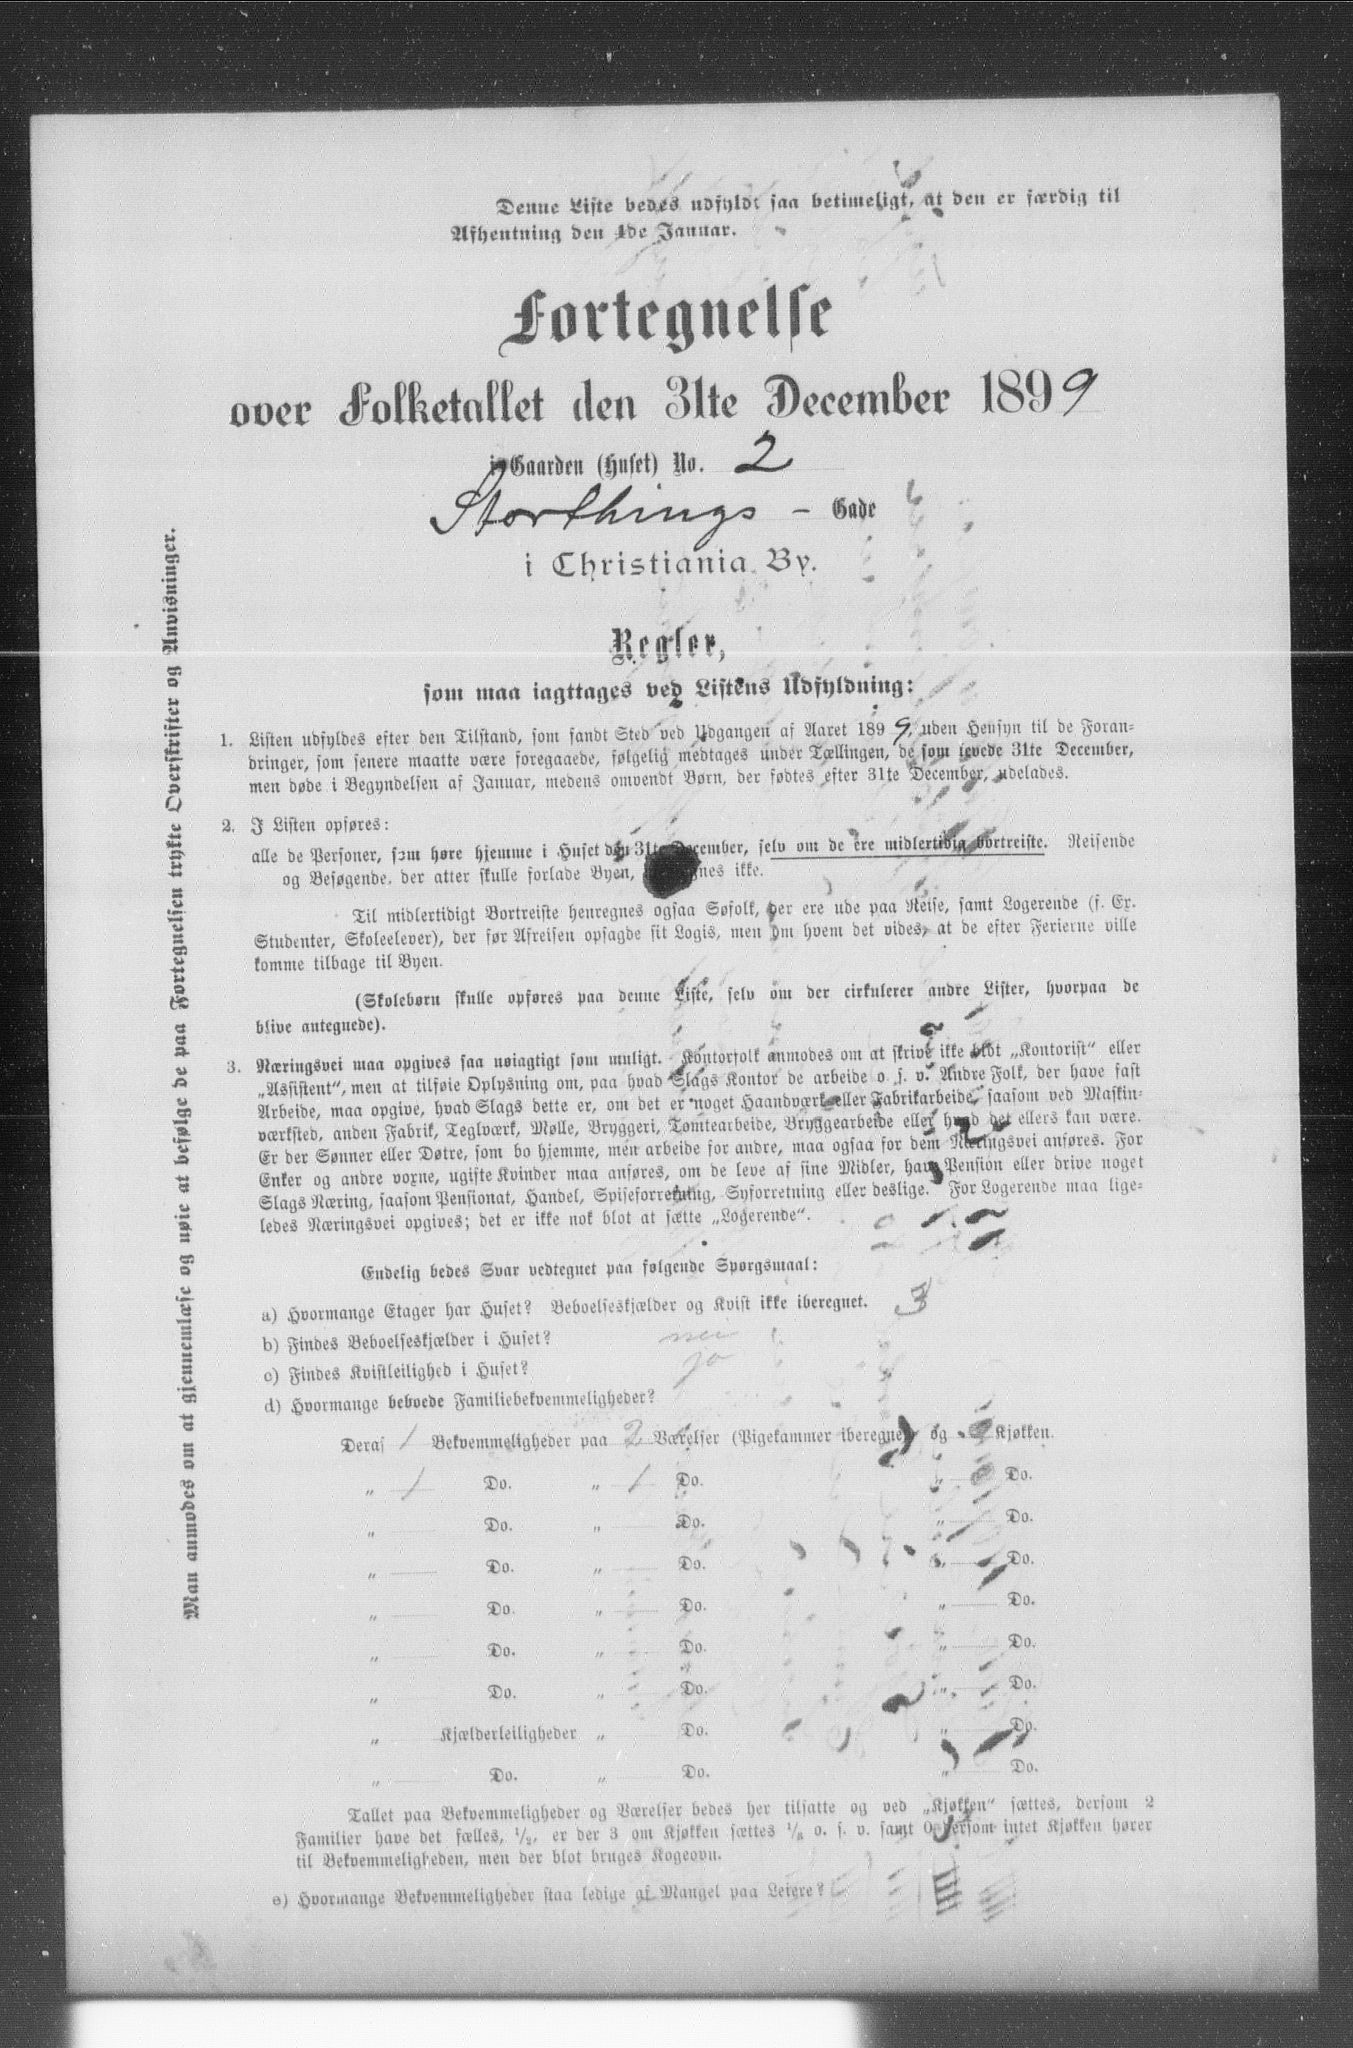 Denne Liste bedes udfyldt saa betimeligt, at den er færdig til
Afhentning den 1de Januar.
Fortegnelse
over Folketallet den 31te December 1899
i Gaarden (Huset) No. 2
Storthings - Gade
i Christiania By.
Regler,
som maa iagttages ved Listens Udfyldning:
1. Listen udfyldes efter den Tilstand, som fandt Sted ved Udgangen af Aaret 1899, uden Hensyn til de Foran-
dringer, som senere maatte være foregaaede, følgelig medtages under Tællingen, de som levede 31te December,
men døde i Begyndelsen af Januar, medens omvendt Børn, der fødtes efter 31te December, udelades.
2. I Listen opføres:
alle de Personer, som høre hjemme i Huset den 31te December, selv om de ere midlertidig bortreiste. Reisende
og Besøgende, der atter skulle forlade Byen, ikke.
Til midlertidigt Bortreiste henregnes ogsaa Søfolk, der ere ude paa Reise, samt Logerende (f. Ex.
Studenter, Skoleelever), der før Afreisen opsagde sit Logis, men om hvem det vides, at de efter Ferierne ville
komme tilbage til Byen.
(Skolebørn skulle opføres paa denne Liste, selv om der cirkulerer andre Lister, hvorpaa de
blive antegnede).
3. Næringsvei maa opgives saa nøiagtigt som muligt. Kontorfolk anmodes om at skrive ikke blot „Kontorist“ eller
„Assistent“, men at tilføie Oplysning om, paa hvad Slags Kontor de arbeide o. s. v. Andre Folk, der have fast
Arbeide, maa opgive, hvad Slags dette er, om det er noget Haandværk eller Fabrikarbeide, saasom ved Maskin-
værksted, anden Fabrik, Teglværk, Mølle, Bryggeri, Tomtearbeide, Bryggearbeide eller hvad det ellers kan være.
Er der Sønner eller Døtre, som bo hjemme, men arbeide for andre, maa ogsaa for dem Næringsvei anføres. For
Enker og andre voxne, ugifte Kvinder maa anføres, om de leve af sine Midler, have Pension eller drive noget
Slags Næring, saasom Pensionat, Handel, Spiseforretning, Syforretning eller deslige. For Logerende maa lige-
ledes Næringsvei opgives; det er ikke nok blot at sætte „Logerende“.
Endelig bedes Svar vedtegnet paa følgende Spørgsmaal:
a) Hvormange Etager har Huset? Beboelseskjælder og Kvist ikke iberegnet. 3
b) Findes Beboelseskjælder i Huset? nei
c) Findes Kvistleilighed i Huset? ja
d) Hvormange beboede Familiebekvemmeligheder?
Deraf 1 Bekvemmeligheder paa 2 Værelser (Pigekammer iberegnet) og 0 Kjøkken.
„ 1 Do. „ 1 Do. „ 0 Do.
„ Do. „ Do. „ Do.
„ Do. „ Do. „ Do.
„ Do. „ Do. „ Do.
„ Do. „ Do. „ Do.
„ Do. „ Do. „ Do.
„ Kjælderleiligheder „ Do. „ Do.
„ Do. „ Do. „ Do.
Tallet paa Bekvemmeligheder og Værelser bedes her tilsatte og ved „Kjøkken“ sættes, dersom 2
Familier have det fælles, 1/2, er der 3 om Kjøkken sættes 1/3 o. s. v. samt 0 dersom intet Kjøkken hører
til Bekvemmeligheden, men der blot bruges Kogeovn.
e) Hvormange Bekvemmeligheder staa ledige af Mangel paa Leiere?
Man anmodes om at gjennemlæse og nøie at befølge de paa Fortegnelsen trykte Overskrifter og Anvisninger.